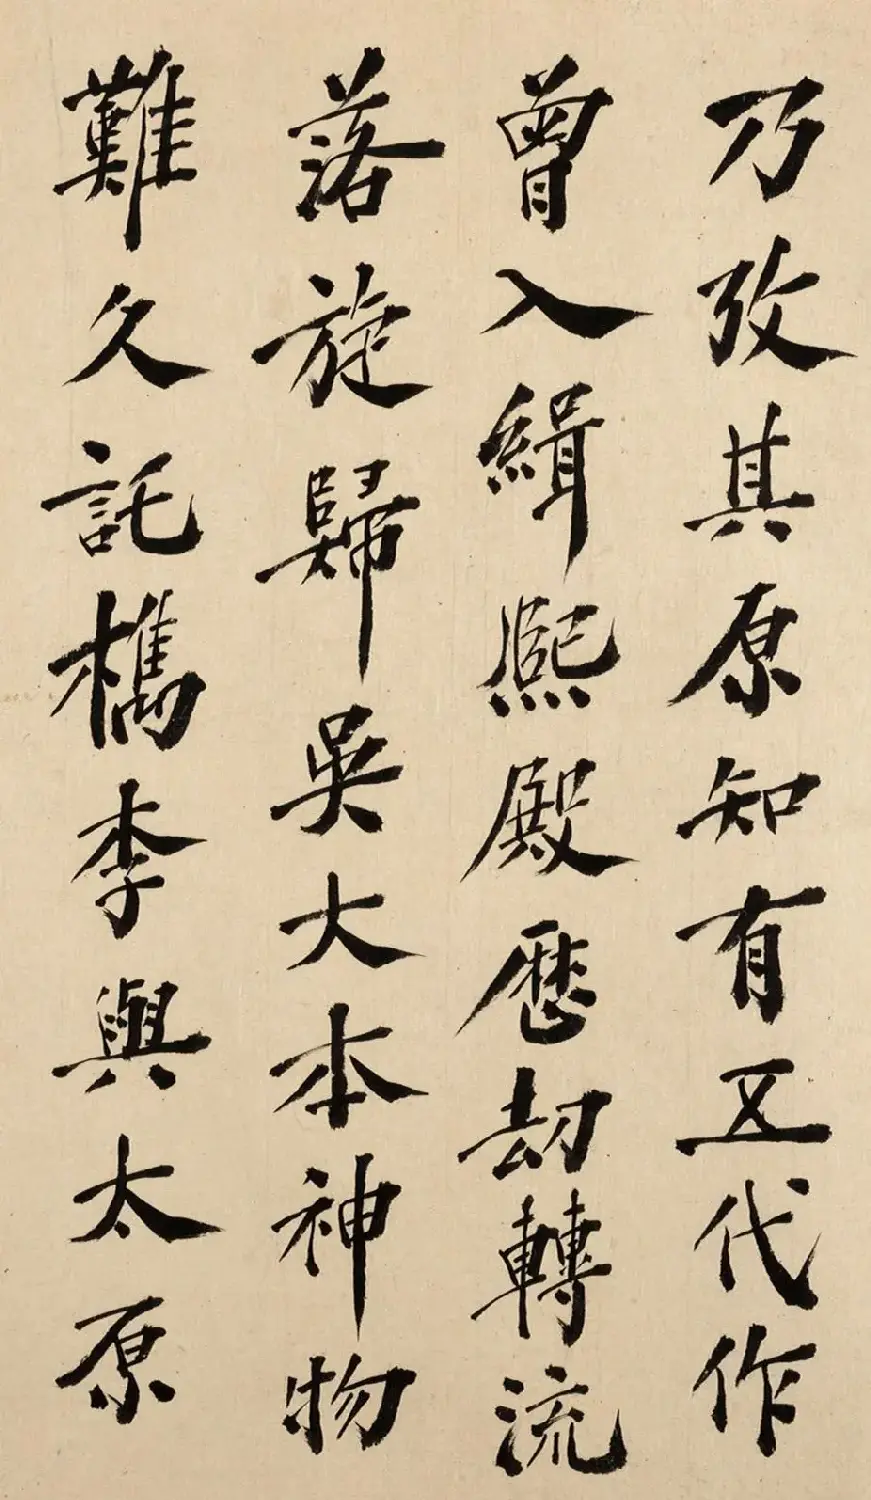 乃攷其原知有五代作
曾入緝熙殿歷劫轉流
落旋歸吳大本神物
難久託檇李與太原